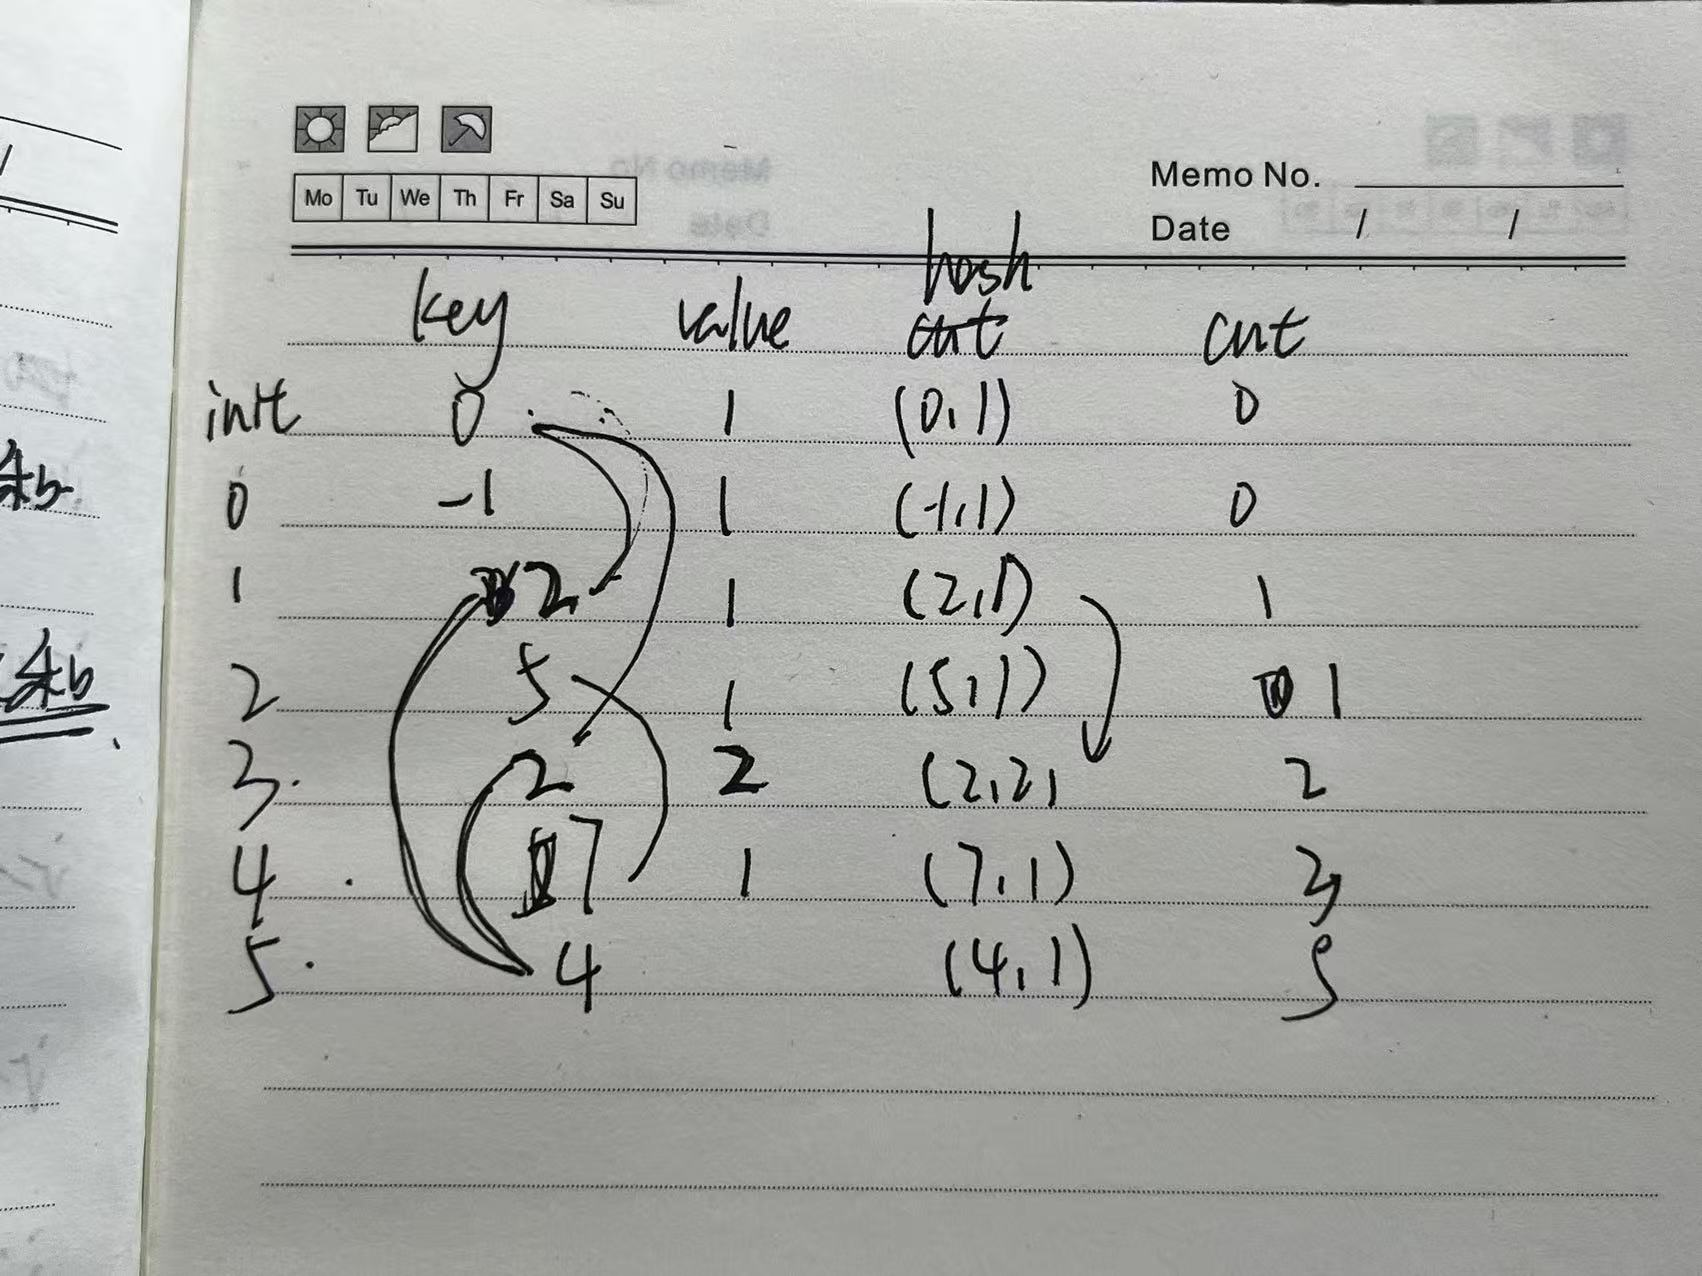 Mo Tu We Th Fr Sa Su
Memo No.
Date / /
hash
key value cnt cnt
init 0 1 (0,1) 0
0 -1 1 (-1,1) 0
1 2 1 (2,1) 1
2 5 1 (5,1) 1
3 2 2 (2,2, 2
4 7 1 (7,1) 3
5 4 (4,1) 5